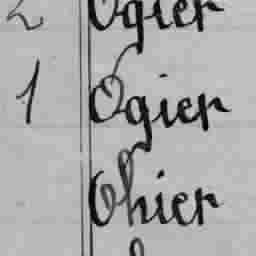 2 Ogier
1 Ogier
Ohier